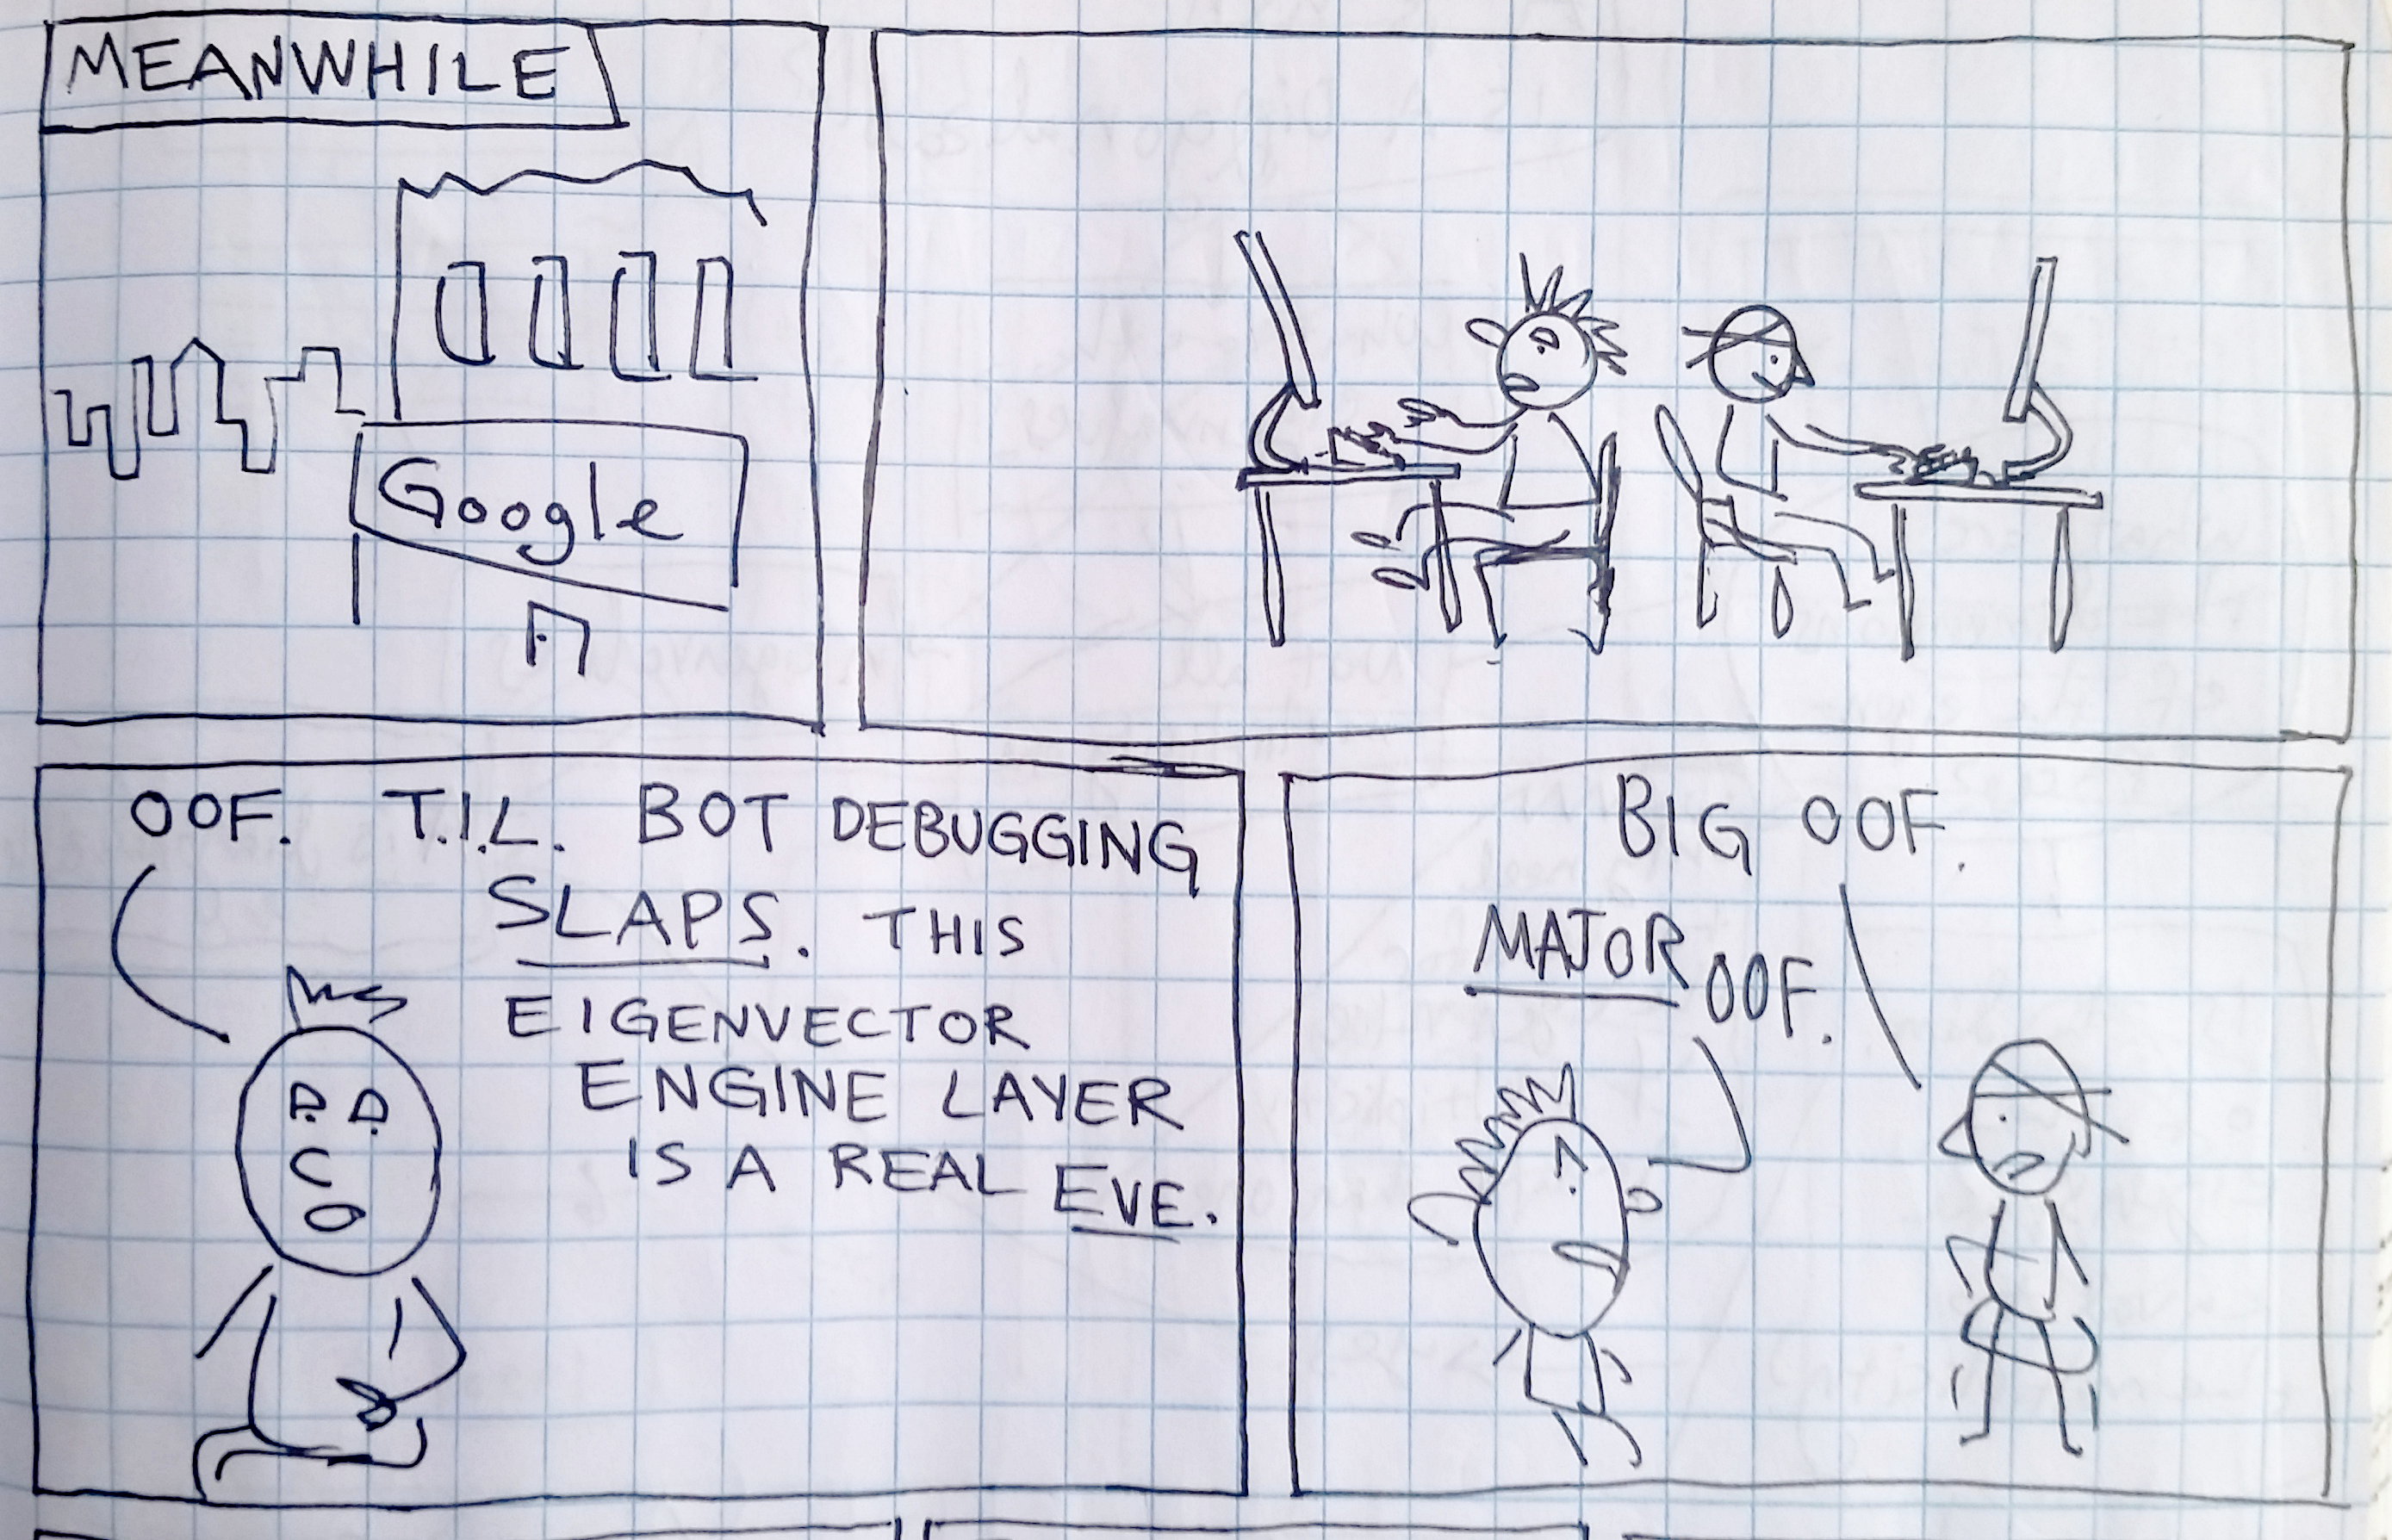 MEANWHILE
Google
OOF. T.I.L. BOT DEBUGGING
SLAPS. THIS
EIGENVECTOR
ENGINE LAYER
IS A REAL EVE.
BIG OOF.
MAJOR OOF.